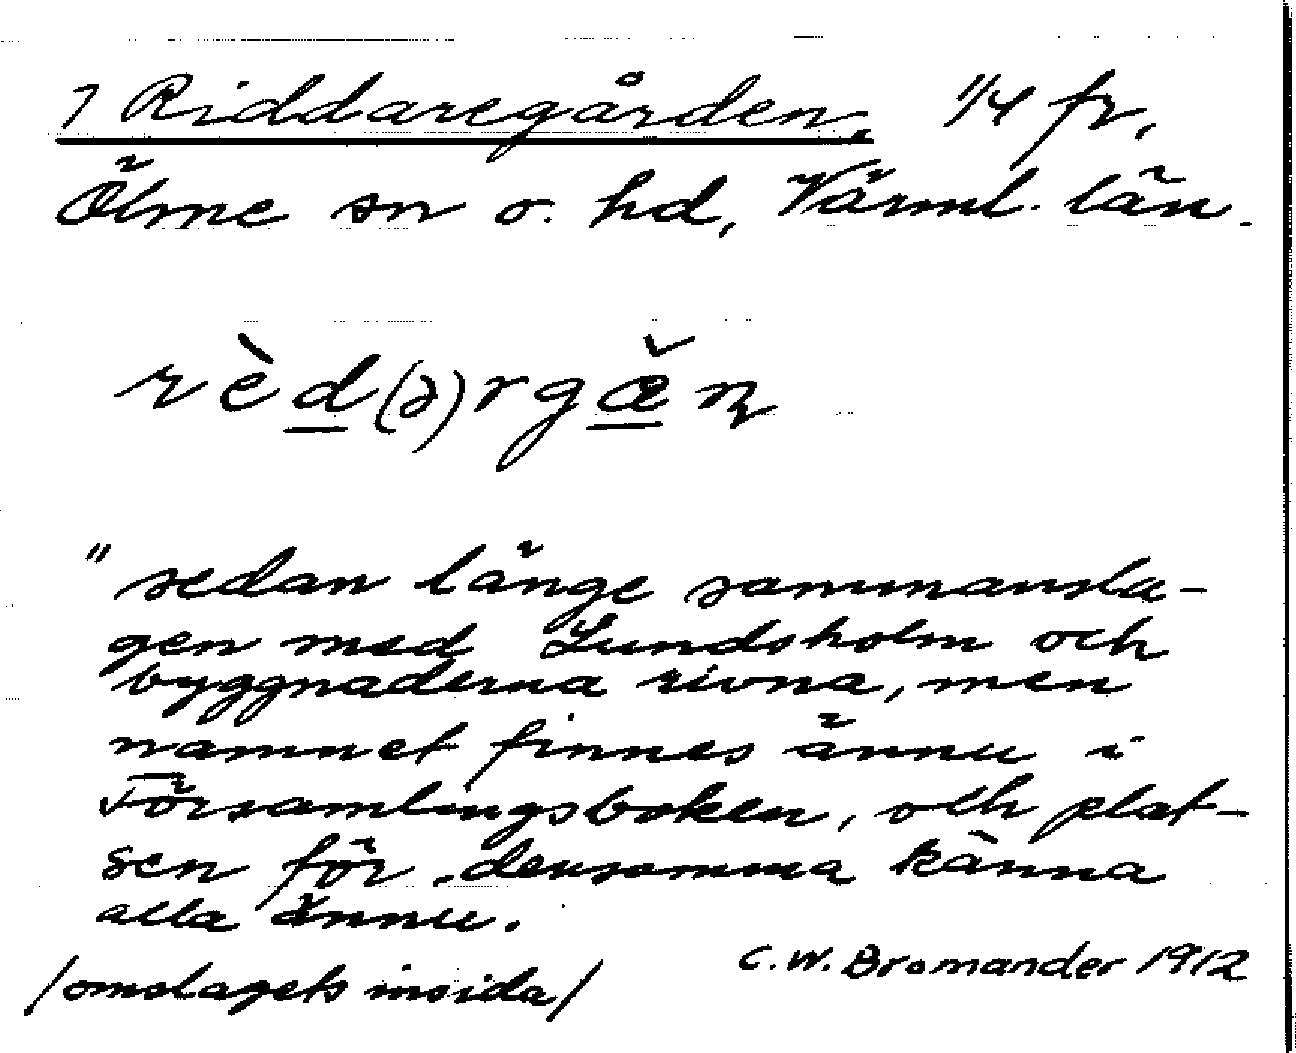 7 Riddaregården, 1/4 fr,
Ölme sn o. hd, Värml. län.
rèd(ə)rgæ̌ɳ
"sedan länge sammansla-
gen med Lundsholm och
byggnaderna rivna, men
namnet finnes ännu i
Församlingsboken, och plat-
sen för densamma känna
alla ännu.
/omslagets insida/ C.W. Bromander 1912